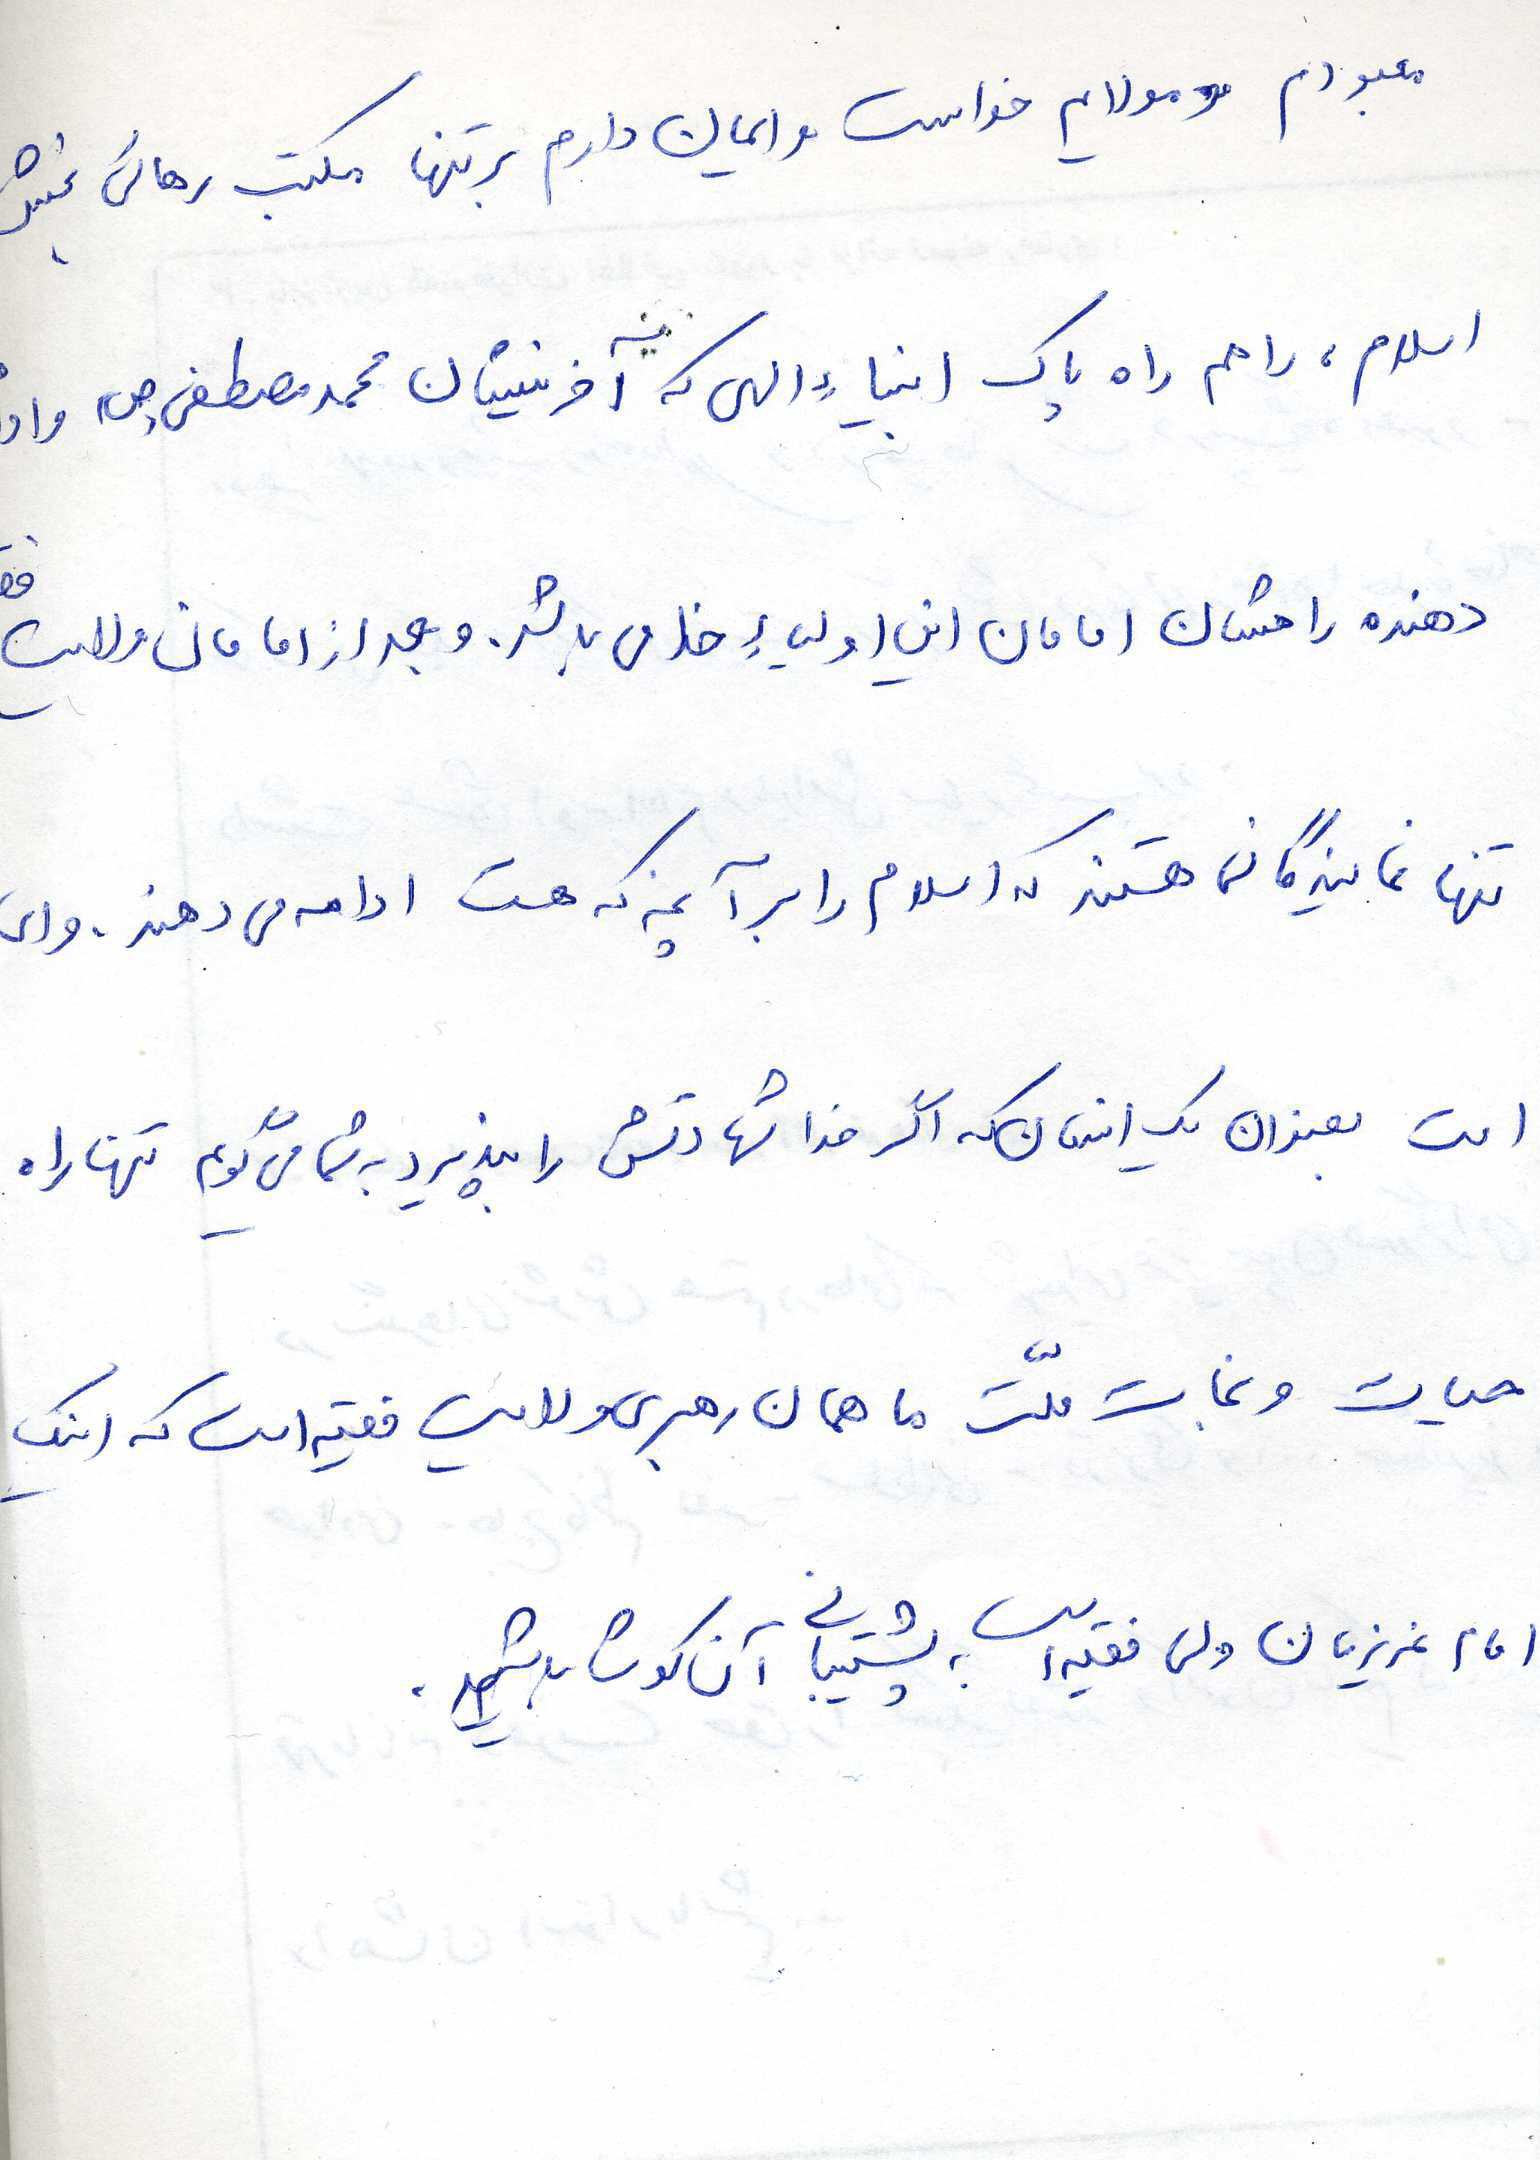 معبودم و مولایم خداست و ایمان دارم بر تنها مکتب رهائی بخش
اسلام، راهم راه پاک انبیاء الهی که آخرینشان محمد مصطفی (ص) و
دهنده راهشان امامان این اولیاء خدا می باشد. و بعد از امامان ولایت
تنها نمایندگانی هستند که اسلام را بر آنچه که هست ادامه می دهند. و ای
امت بعنوان یک انسان که اگر خدا شهادتش را بپذیرد به شما می گویم تنها راه
حیات و نجات ملّت ما همان رهبری ولایت فقیه است که اینک
امام عزیزمان ولی فقیه است به پشتیبانی آن کوشا باشید.